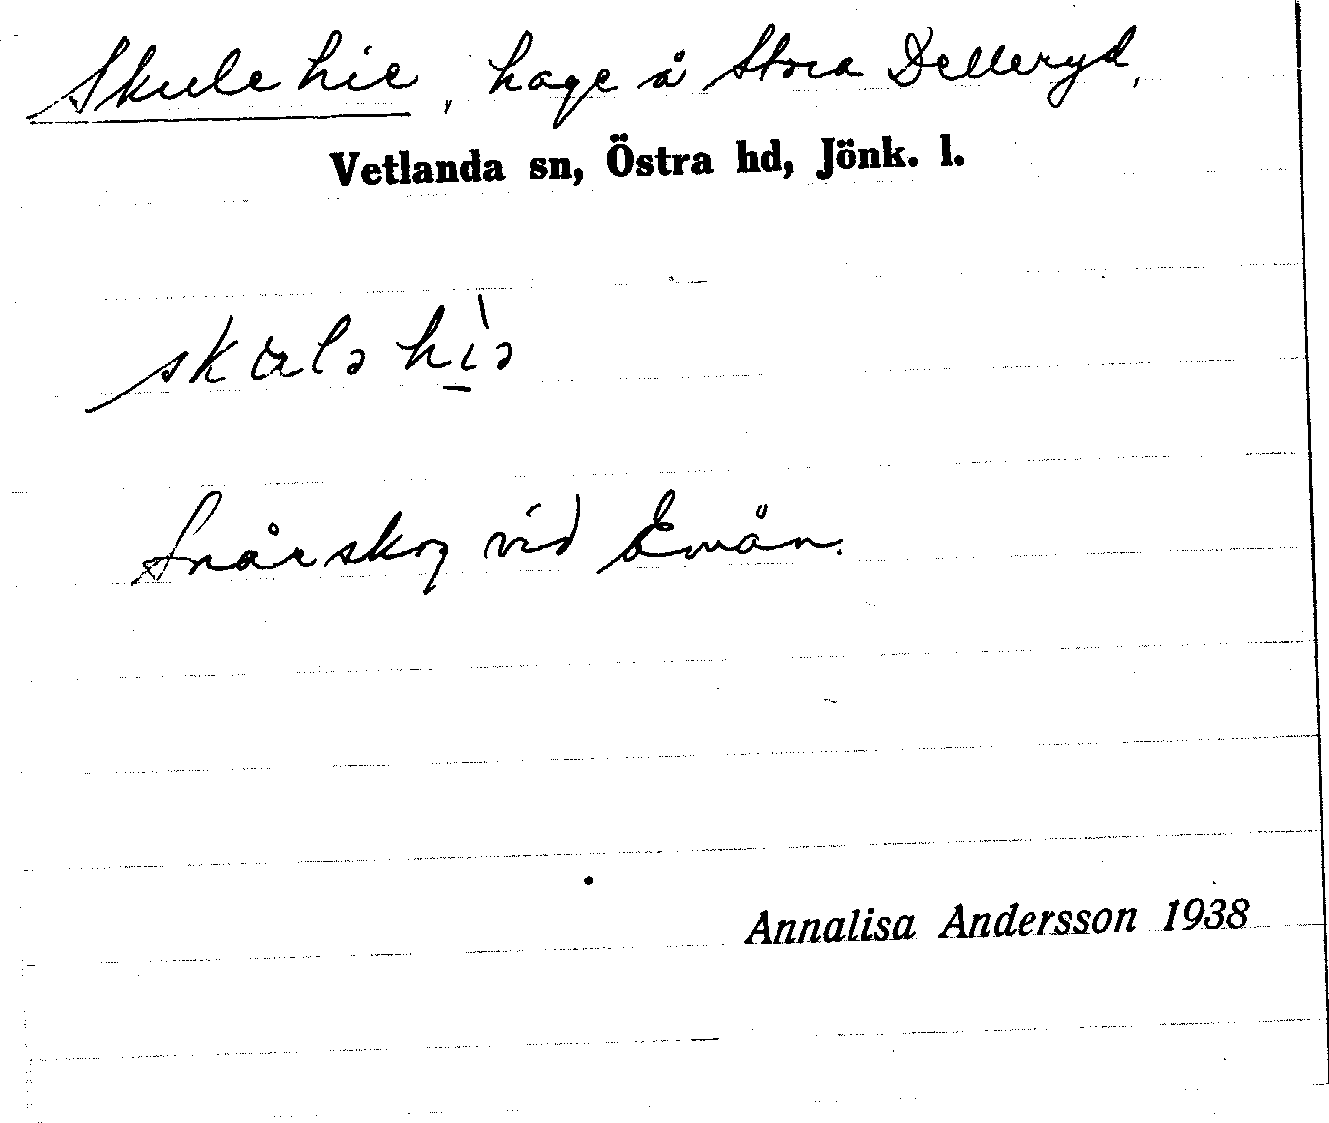 Skulehie, hage å Stora Delleryd,
Vetlanda sn, Östra hd, Jönk. l.
skɷlə hìə
Snårskog vid Emån.
Annalisa Andersson 1938